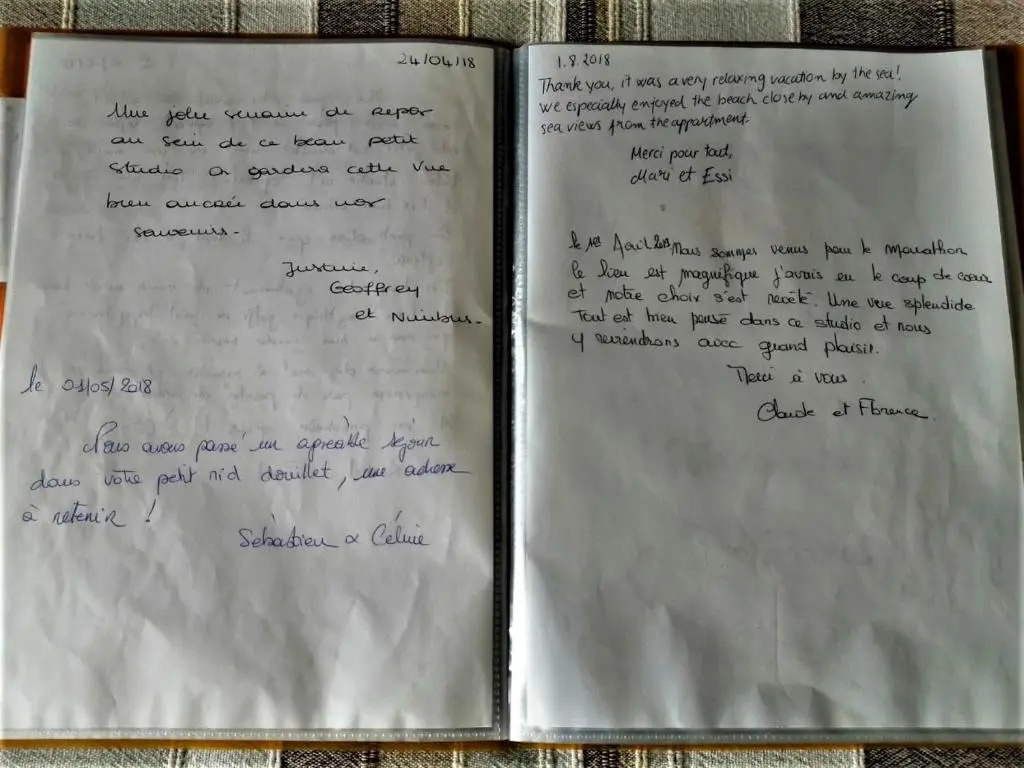 24/04/18
Une jolie semaine de repos
au sein de ce beau petit
studio on gardera cette vue
bien ancrée dans nos
souvenirs.
Justine,
Geoffrey
et Nimbus.
le 01/05/2018
Nous avons passé un agréable séjour
dans votre petit nid douillet, une adresse
à retenir !
Sébastien & Céline
1.8.2018
Thank you, it was a very relaxing vacation by the sea!
We especially enjoyed the beach close by and amazing
sea views from the appartment.
Merci pour tout,
Mari et Essi
le 1er April Nous sommes venus pour le marathon
le lieu est magnifique j'avais eu le coup de coeur
et notre choix s'est Une vue splendide
Tout est bien pensé dans ce studio et nous
y reviendrons avec grand plaisir.
Merci à vous.
Claude et Florence.